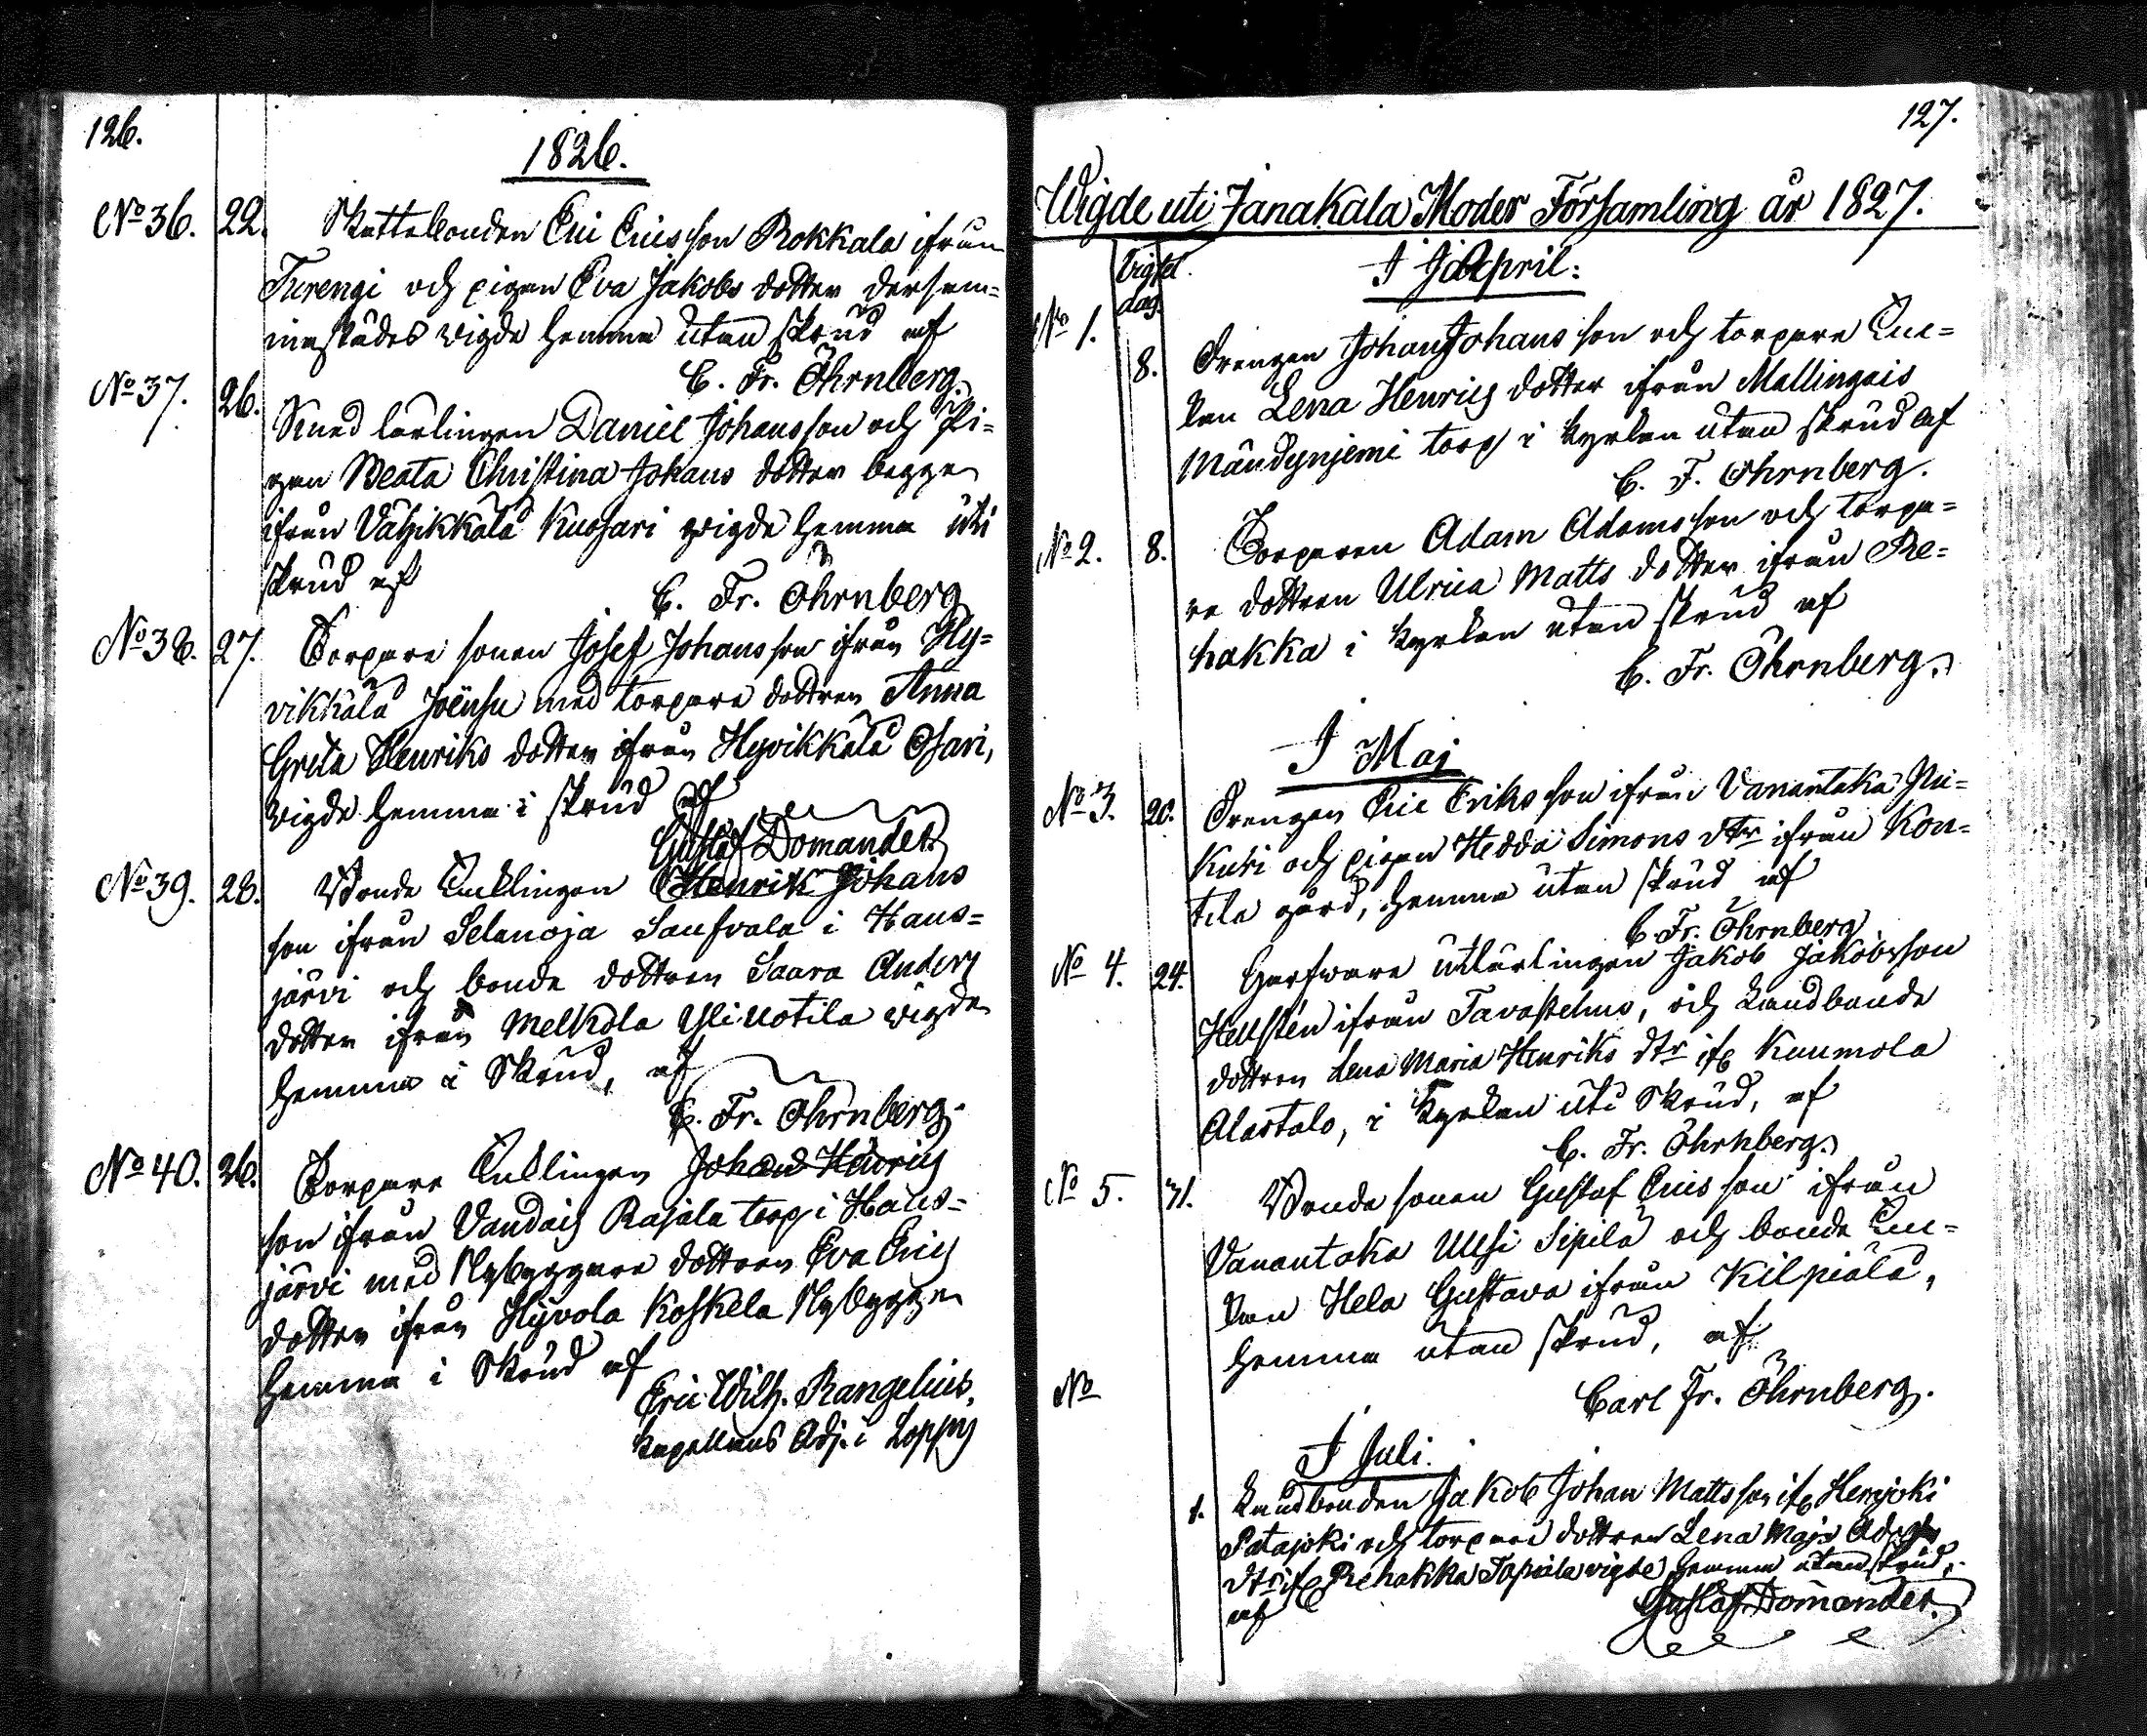 126.
1826.
No 36. 22. Skattebonden Eric Ericsson Rokkala ifrån
Turengi och pigan Eva Jakobs dotter dersam=
mastädes vigde hemma utan skrud af
C. Fr. Öhrnberg.
No 37. 26. Smed lärlingen Daniel Johansson och Pi=
gan Beata Christina Johans dotter begge
ifrån Vähikkälä Kuosari vigde hemma uti
skrud af
C. Fr. Öhrnberg
No 38. 27. Torpare sonen Josef Johansson ifrån Hy=
vikkälä Joënsu med torpare dottren Anna
Greta Henriks dotter ifrån Hyvikkälä Ojari,
vigde hemma i skrud af
Gustaf Domander
No 39. 28. Bonde Enklingen Henrik Johans
son ifrån Selänoja Saufvala i Haus=
järvi och bonde dottren Saara Anders
dotter ifrån Melkola Yliuotila vigde
hemma i Skrud, af
C. Fr. Öhrnberg.
No 40. 26. Torpare Enklingen Johan Henrics
son ifrån Vandais Rajala torp i Haus=
järvi med Nybyggare dottren Eva Erics
dotter ifrån Hyvola Koskela Nybygge
hemma i Skrud af
Eric Wilh. Rangelius,
Kapellans Adj. i Loppis
127.
Wigde uti Janakala Moder Församling år 1827.
Vigsel
dag.
I April:
No 1. 8. Drengen Johan Johansson och torpare En=
kan Lena Henrics dotter ifrån Mallingais
Mändynjemi torp i kyrkan utan skrud af
C. F. Öhrnberg.
No 2. 8. Torparen Adam Adamsson och torpa=
re dottren Ulrica Matts dotter ifrån Re=
hakka i kyrkan utan skrud af
C. Fr. Öhrnberg.
I Maj
No 3. 20. Drengen Eric Eriksson ifrån Vanantaka Ni=
kuri och pigan Hedda Simons dtr ifrån Kon=
tila gård, hemma utan skrud af
C. Fr. Öhrnberg
No 4. 24. Garfvare utlärlingen Jakob Jakobsson
Hellstén ifrån Tavastehus, och Landbonde
dottren Lena Maria Henriks dtr ifr Kuumola
Alastalo, i Kyrkan uti Skrud, af
C. Fr. Öhrnberg.
No 5. 31. Bonde sonen Gustaf Ericsson ifrån
Vanantaka Uusi Sipilä och bonde En=
kan Hela Gustava ifrån Kilpiälä,
hemma utan skrud, af
Carl Fr. Öhrnberg.
No
I Juli.
1. Landbonden Jakob Johan Mattsson ifr Hemjoki
Patajoki och torpare dottren Lena Maja Adams
dtr ifr Rehakka Tapiala vigde hemma utan skrud,
af
Gustaf Domander.